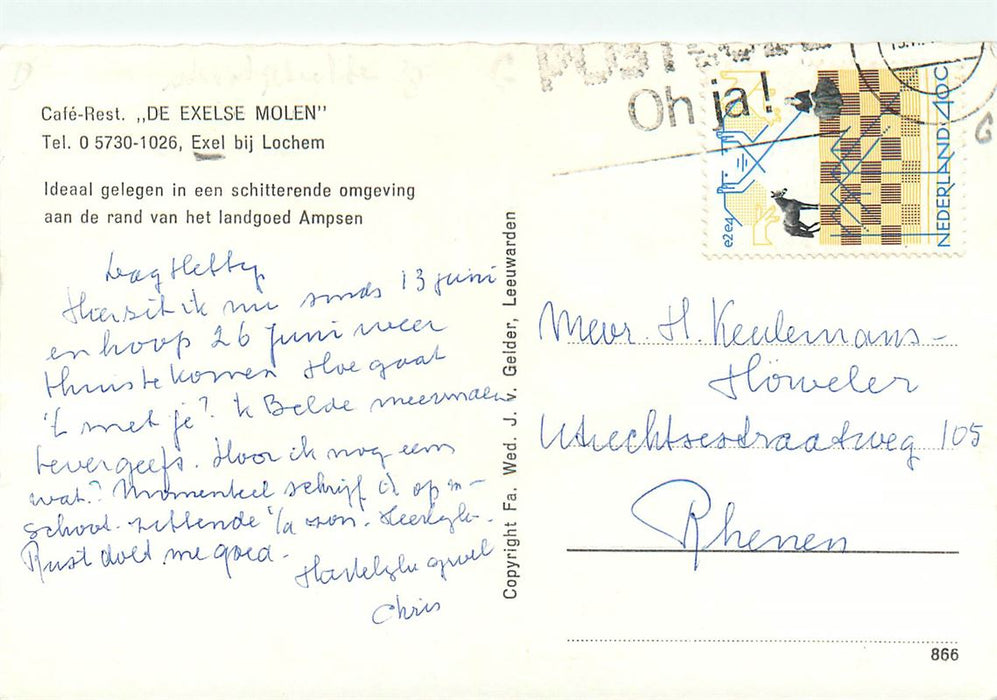 Café-Rest. „DE EXELSE MOLEN"
Tel. 0 5730-1026, Exel bij Lochem
Ideaal gelegen in een schitterende omgeving
aan de rand van het landgoed Ampsen
Dag Hetty
Hier zit ik nu sinds 13 juni
en hoop 26 juni weer
thuis te komen Hoe gaat
't met je? 'k Belde meermalen
tevergeefs. Hoor ik nog eens
wat? Momenteel schrijf ik op m'n
schoot zittende i/d zon. Heerlijk.
Rust doet me goed.
Hartelijke groet
Chris
Copyright Fa. Wed. J. v. Gelder, Leeuwarden
POST
Oh ja!
e2e4
NEDERLAND 40c
Mevr. H. Keulemans-
Höweler
Utrechtsestraatweg 105
Rhenen
866